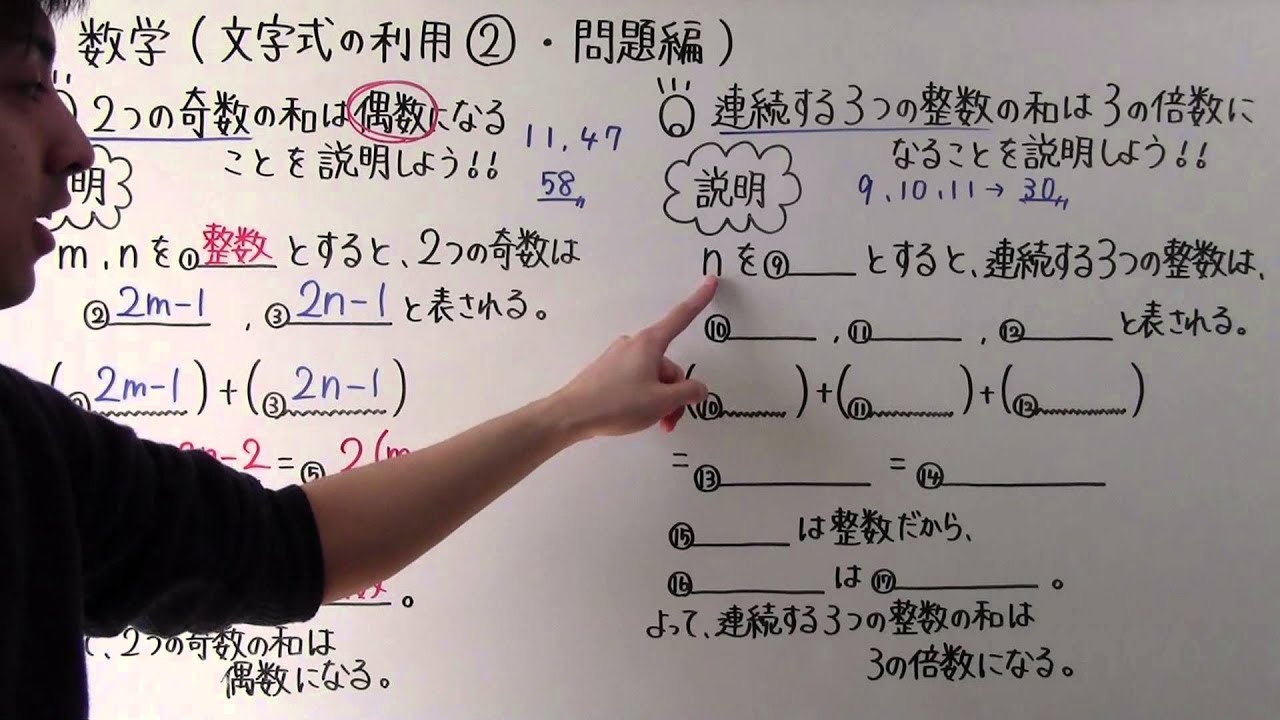 数学(文字式の利用②・問題編)
2つの奇数の和は偶数になる
ことを説明しよう!!
11,47
58
明
m,nを①整数とすると、2つの奇数は
②2m-1,③2n-1と表される。
(2m-1)+(③2n-1)
-2=⑤2(m
。
、2つの奇数の和は
偶数になる。
連続する3つの整数の和は3の倍数に
なることを説明しよう!!
説明
9,10,11→30
nを⑨とすると、連続する3つの整数は、
⑩,⑪,⑫と表される。
(⑩)+(⑪)+(⑫)
=⑬=⑭
⑮は整数だから、
⑯は⑰。
よって、連続する3つの整数の和は
3の倍数になる。